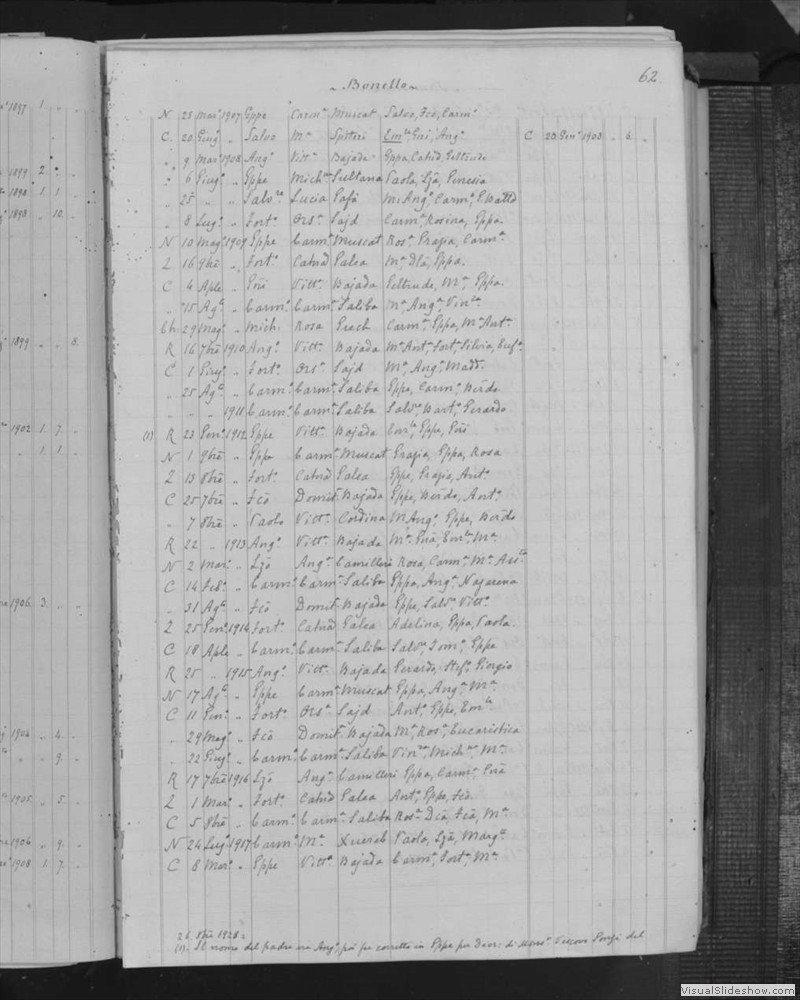 62.
Bonello
N 25 Mar.º 1907 Eppe Carmª Muscat Salva, Fcª, Carmª
C. 20 Giugº „ Salvo Mª Spiteri Emlª, Gni, Angª C 23 Genº 1903 „ 6 „
„ 9 Marº 1908 Angº Vittª Bajada Eppa, Catnd, Geltrude
„ 6 Giugº „ Eppe Michª Sultana Paola, Lzª,
„ 25 „ „ Salvre Lucia Rafª M. Angª, Carmª,
„ 8 Lugº „ Fortº Orsª Sajd Carmª, Rosina, Eppa
N 10 Magº 1909 Eppe Carmª Muscat Rosª, Grazia, Carmª
Z 16 9bre „ Fortº Catnd Galea Mª, Dlª, Eppa.
C 4 Aple „ Gni Vittª Bajada Geltrude, Mª, Eppa
„ 15 Agº „ Carmº Carmª Saliba Mª, Angª, Vinª
Ch. 29 Magº „ Mich. Rosa Grech Carmª, Eppa, M. Antª
R 16 7bre 1910 Angº Vittª Bajada M. Antª, Fortª, Silvia,
C 1 Giugº „ Fortº Orsª Sajd Mª, Angª, Madd.
„ 25 Agº „ Carmº Carmª Saliba Eppe, Carmº, Berdo
„ „ „ 1911 Carmº Carmª Saliba Salvº, Bartº, Gerardo
(1) R 23 Genº 1912 Eppe Vittª Bajada Emlª, Eppa, Gnª
N 1 9bre „ Eppe Carmª Muscat Grazia, Eppa, Rosa
Z 13 8bre „ Fortº Catnd Galea Eppe, Grazio, Antº
C 25 7bre „ Fcº Domitª Bajada Eppe, Berdo, Antº
„ 7 8bre „ Paolo Vittª Cordina M. Angº, Eppe, Berdo
R 22 „ 1913 Angº Vittª Bajada Mª, Gnª, Emlª, Mª
N 2 Marº „ Lzº Angª Camilleri Rosa, Carmª, Mª, Assª
C 14 Febº „ Carmº Carmª Saliba Eppa, Angª, Nazarena
„ 31 Agº „ Fcº Domitª Bajada Eppe, Salvº, Vittº
Z 25 Genº 1914 Fortº Catnd Galea Adelina, Eppa, Paola
C 18 Aple „ Carmº Carmª Saliba Salvº, Tomº, Eppe
R 25 „ 1915 Angº Vittª Bajada Gerardo, Stefº, Giorgio
N 17 Agº „ Eppe Carmª Muscat Eppa, Angª, Mª
C 11 Genº „ Fortº Orsª Sajd Antº, Eppe, Emlº
„ 29 Magº „ Fcº Domitª Bajada Mª, Rosª, Eucaristica
„ 22 Giugº „ Carmº Carmª Saliba Vinª, Michª, Mª
R 17 7bre 1916 Lzº Angª Camilleri Eppa, Carmª, Gnª
Z 1 Marº „ Fortº Catnd Galea Antº, Eppe, Fcº
C 5 8bre „ Carmº Carmª Saliba Rosª, Dlª, Fcª, Mª
N 24 Lugº 1917 Carmº Mª Xuereb Paolo, Lzª, Margª
C 8 Marº „ Eppe Vittª Bajada Carmª, Fortª, Mª
26. 8bre 1928 =
(1). Il nome del padre era Angº, poi fu corretto in Eppe per Decr: di Monsr Vescovo Gonzi del
1897 1 „ „
1899 2
1898 1 1
1898 „ 10 „
1899 „ „ 8.
1902 1 7 „
„ 1 1
1906 3 „ „
1904 „ 4 „
„ 9 „
1905 „ 5 „
1906 „ 9 „
1908 1 7 „
VisualSlideshow.com